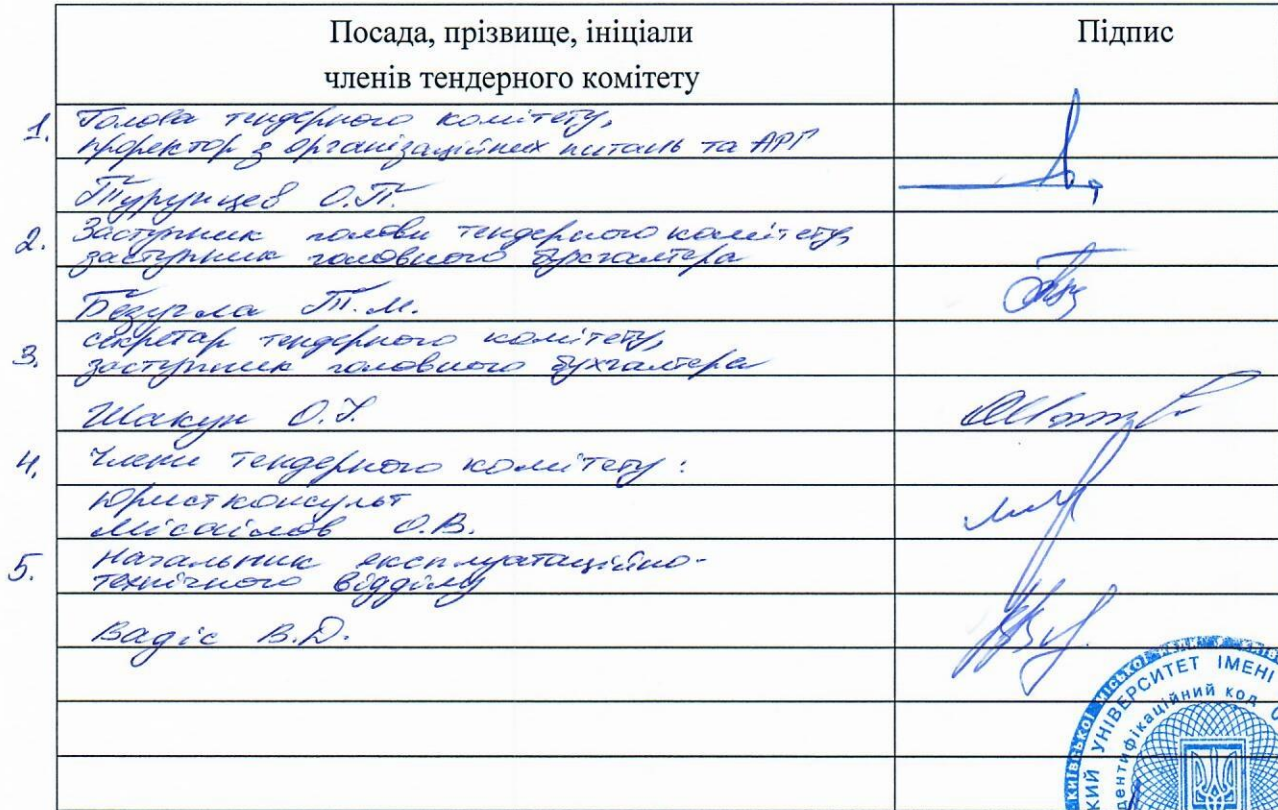 Посада, прізвище, ініціали
членів тендерного комітету
Підпис
1. Голова тендерного комітету,
проректор з організаційних питань та АРГ
Турунцев О.П.
2. Заступник голови тендерного комітету,
заступник головного бухгалтера
Безугла Т.М.
3. секретар тендерного комітету,
заступник головного бухгалтера
Шакун О.І.
4. Члени тендерного комітету:
юристконсульт
Місаілов О.В.
5. Начальник експлуатаційно-
технічного відділу
Вадіс В.Д.
КИЇВСЬКОЇ МІСЬКОЇ
УНІВЕРСИТЕТ ІМЕНІ
ідентифікаційний код